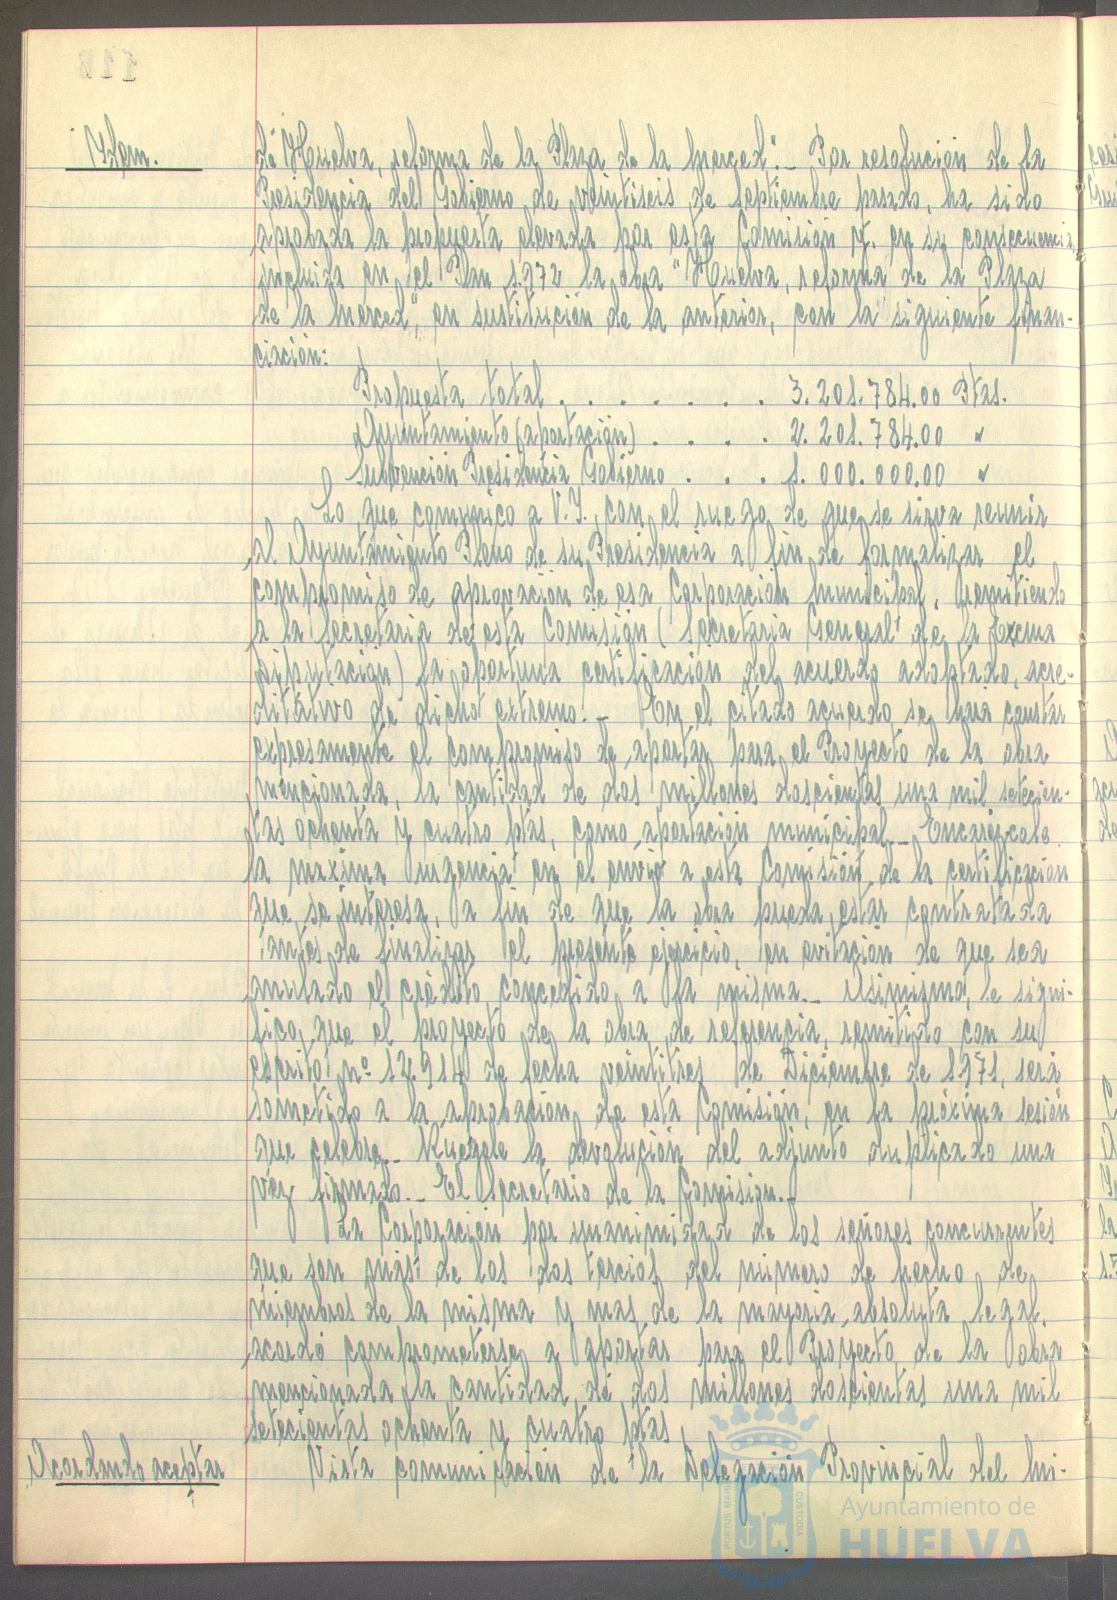 Idem.
de "Huelva, reforma de la Plaza de la Merced".- Por resolución de la
Presidencia del Gobierno de veintiseis de Septiembre pasado, ha sido
aprobada la propuesta elevada por esta Comisión y. en su consecuencia
incluida en el Plan 1.972 la obra "Huelva, reforma de la Plaza
de la Merced", en sustitución de la anterior, con la siguiente finan-
ciación:
Propuesta total . . . . . . . 3.201.784.00 Ptas.
Ayuntamiento (aportación) . . . . 2.201.784.00 "
Subvención Presidencia Gobierno . . . 1.000.000.00 "
Lo que comunico a V.I., con el ruego de que se sirva reunir
al Ayuntamiento Pleno de su Presidencia a fin de formalizar el
compromiso de aportación de esa Corporación Municipal, remitiendo
a la Secretaria de esta Comisión (Secretaria General de la Excma
Diputación) la oportuna certificación del acuerdo adoptado, acre-
ditativo de dicho extremo.- En el citado acuerdo se hará constar
expresamente el compromiso de aportar para el Proyecto de la obra
mencionada, la cantidad de dos millones doscientas una mil setecien-
tas ochenta y cuatro ptas, como aportación municipal.- Encarézcole
la maxima urgencia en el envio a esta Comisión de la certificación
que se interesa, a fin de que la obra pueda estar contratada
antes de finalizar el presente ejercicio, en evitación de que sea
anulado el crédito concedido a la misma.- Asimismo, le signi-
fico, que el proyecto de la obra de referencia, remitido con su
escrito nº 12.914 de fecha veintitres de Diciembre de 1.971, será
sometido a la aprobación de esta Comisión, en la próxima sesión
que celebre.- Ruegole la devolución del adjunto duplicado una
vez firmado.- El Secretario de la Comisión.-
La Corporación por unanimidad de los señores concurrentes
que son más de los dos tercios del número de hecho de
miembros de la misma y mas de la mayoria absoluta legal,
acordó comprometerse a aportar para el Proyecto de la obra
mencionada la cantidad de dos millones doscientas una mil
setecientas ochenta y cuatro ptas
Acordando aceptar
Vista comunicación de la Delegación Provincial del Mi-
PORTUS MARIS
CUSTODIA
Ayuntamiento de
HUELVA